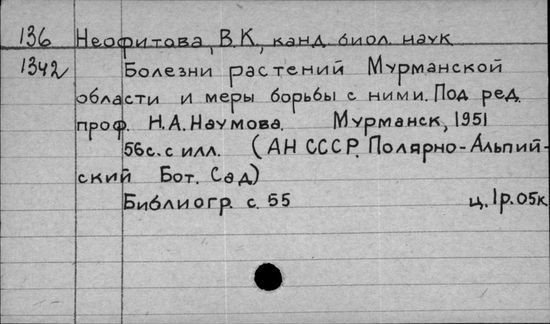 136 Неофитова, В.К., канд. биол. наук
1342 Болезни растений Мурманской
области и меры борьбы с ними. Под ред.
проф. Н.А. Наумова. Мурманск, 1951
56с. с илл. (АН СССР. Полярно-Альпий-
ский Бот. Сад)
Библиогр. с. 55 ц. 1р. 05к